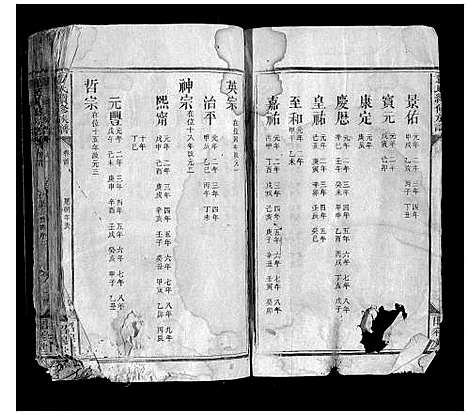 景佑 元年 二年 三年 四年
甲戌 乙亥 丙子 丁丑
寶元 元年 二年
戊寅 己卯
康定 元年
庚辰
慶厯 元年 二年 三年 四年 五年 六年 七年 八年
辛巳 壬午 癸未 甲申 乙酉 丙戌 丁亥 戊子
皇祐 元年 二年 三年 四年 五年
己丑 庚寅 辛卯 壬辰 癸巳
至和 元年 二年
甲午 乙未
嘉祐 元年 二年 三年 四年 五年 六年 七年 八年
丙申 丁酉 戊戌 己亥 庚子 辛丑 壬寅 癸卯
英宗
治平 元年 二年 三年 四年
甲辰 乙巳 丙午 丁未
神宗 在位十八年改元二
熙甯 元年 二年 三年 四年 五年 六年 七年 八年 九年
戊申 己酉 庚戌 辛亥 壬子 癸丑 甲寅 乙卯 丙辰
十年
丁巳
元豐 元年 二年 三年 四年 五年 六年 七年 八年
戊午 己未 庚申 辛酉 壬戌 癸亥 甲子 乙丑
哲宗 在位十五年改元三